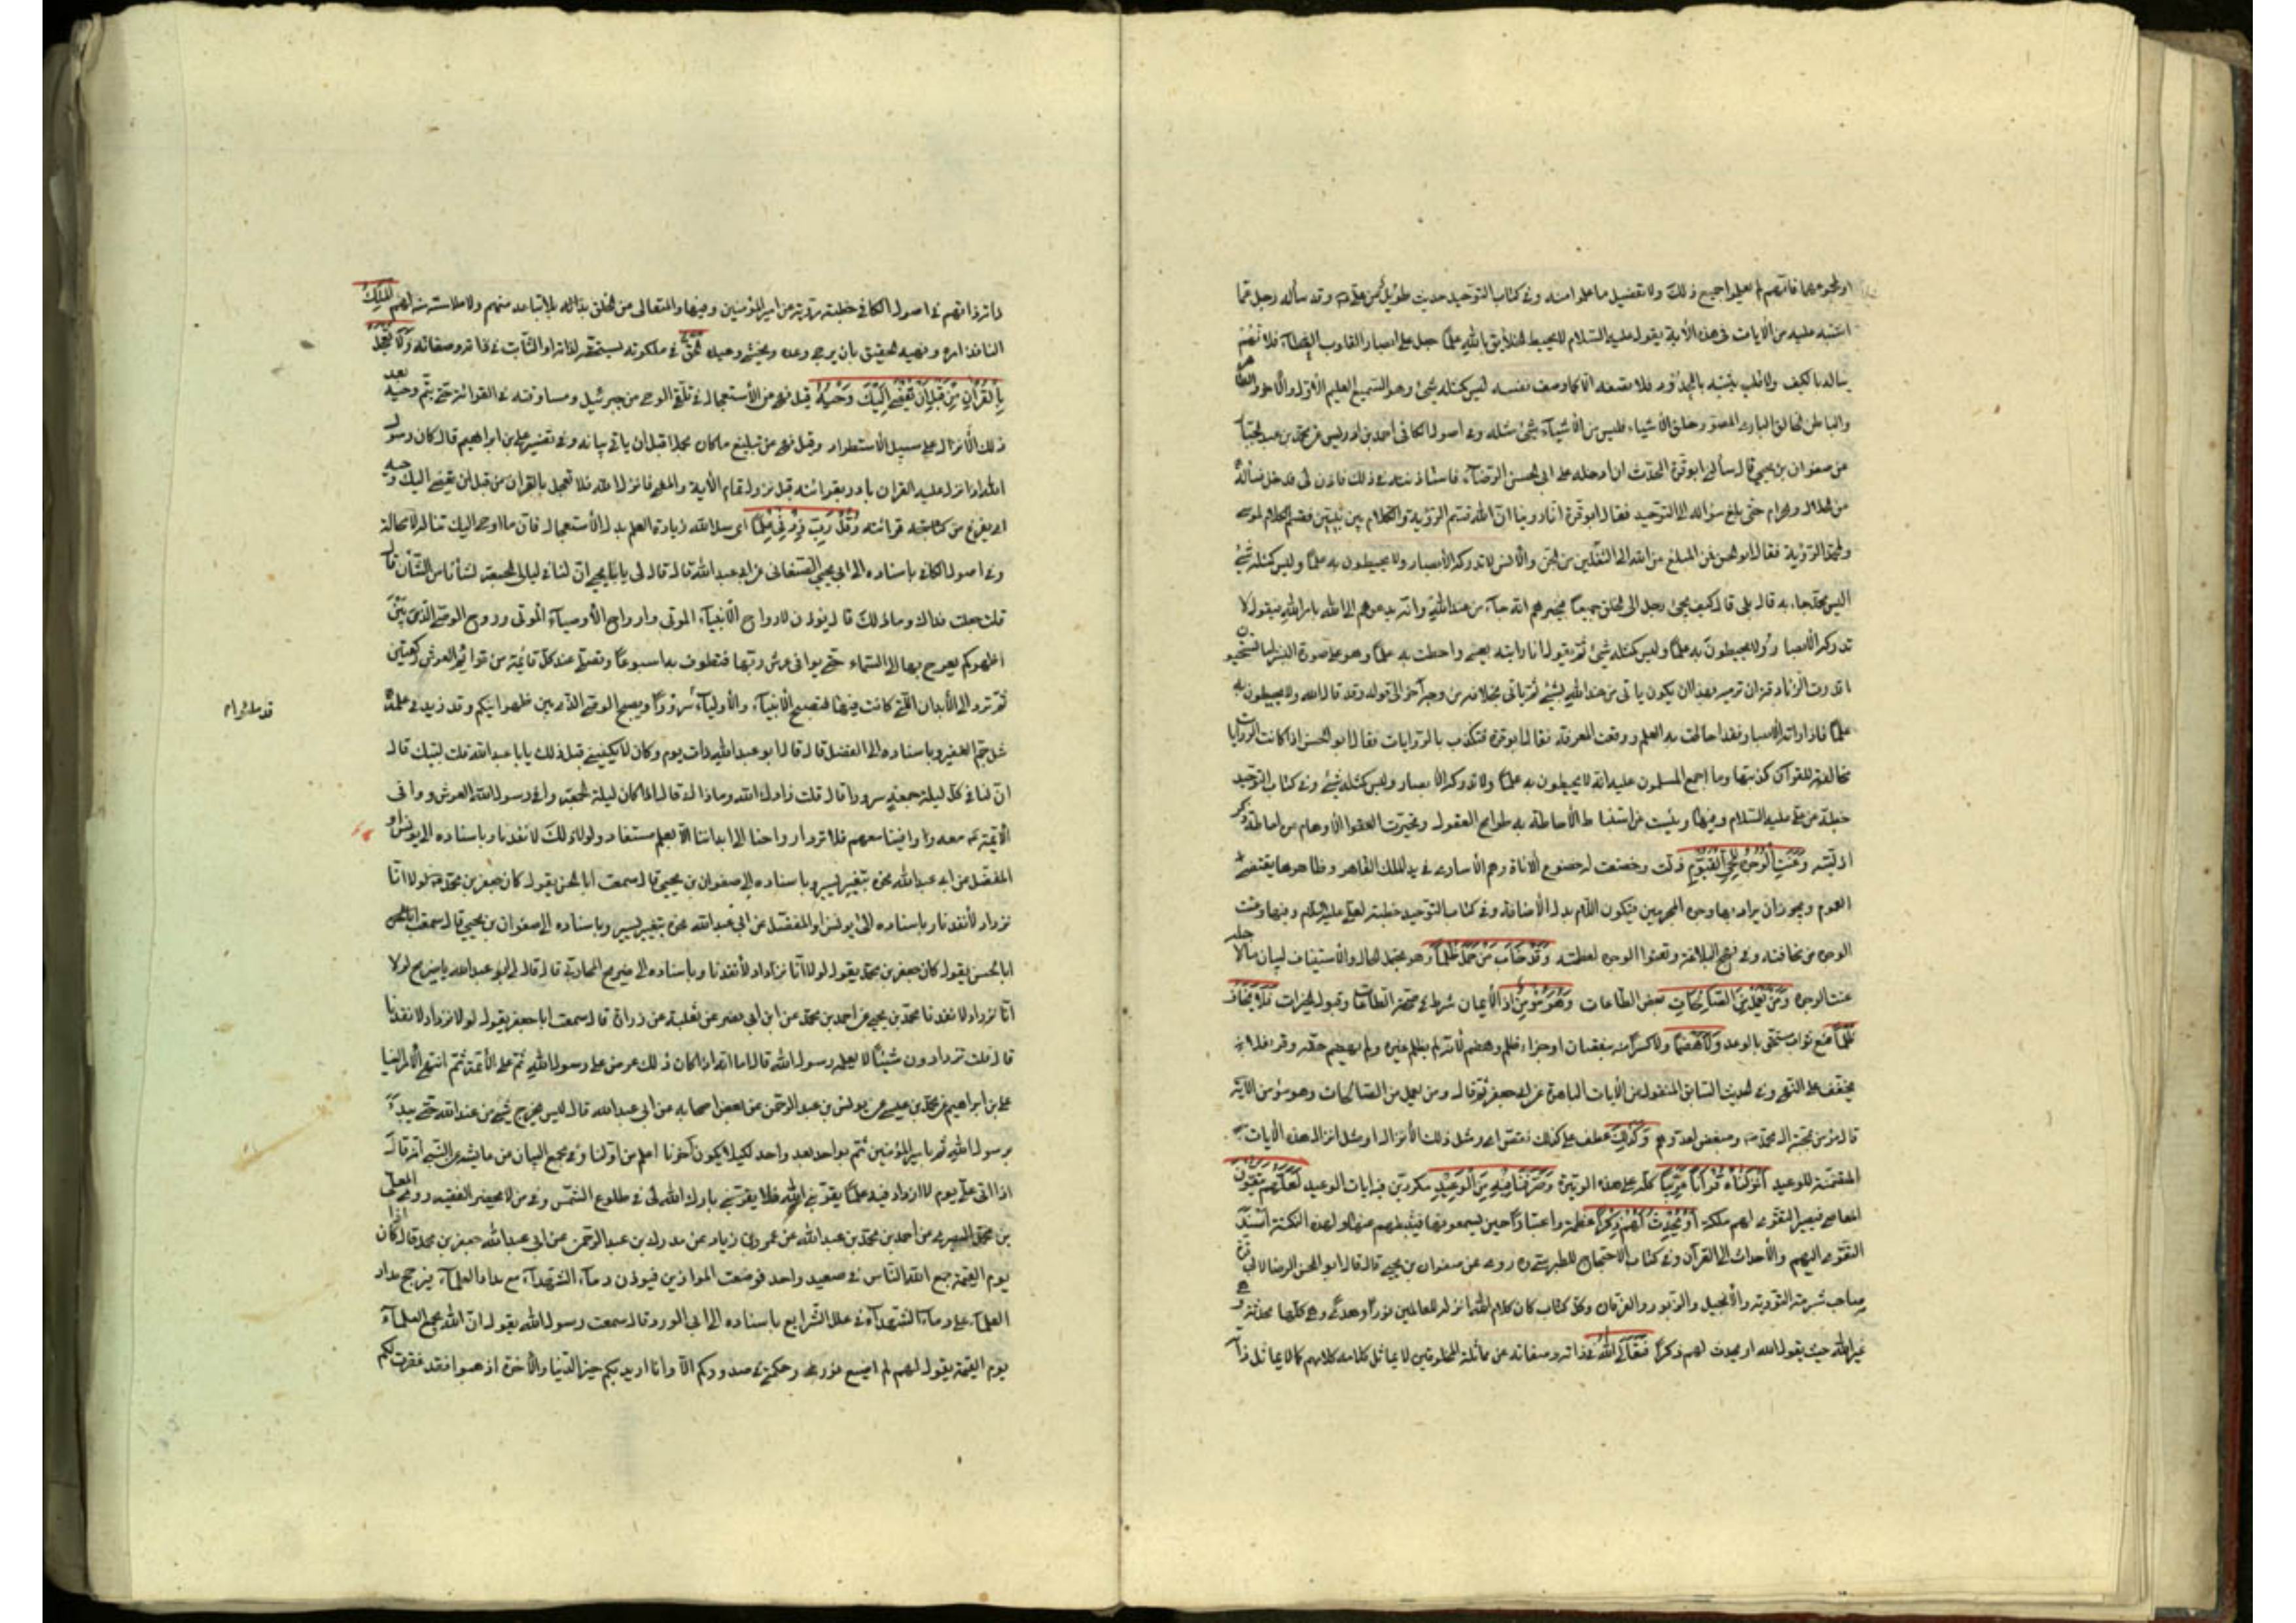 او لمجموعهما فانهم لم يعلموا جميع ذلك ولا تفصيل ما علموا منه وفى كتاب التوحيد حديث طويل عن على وقد سأله رجل عما
اشتبه عليه من الآيات فى هذه الآية يقول عليه السلام لا يحيط الخلائق بالله علما جعل على ابصار القلوب الغطاء فلا فهم
يناله بالكيف ولا قلب يثبته بالحدود فلا نصفه الا كما وصف نفسه ليس كمثله شئ وهو السميع العليم الأول والآخر والظاهر
والباطن الخالق البارئ المصور خلق الأشياء فليس من الأشياء شئ مثله وفى اصول الكافى احمد بن ادريس عن محمد بن عبد الجبار
عن صفوان بن يحيى قال سألنى ابوقرة المحدث ان ادخله على ابى الحسن الرضا فاستأذنته فى ذلك فاذن لى فدخل فسأله
من الحلال والحرام حتى بلغ سؤاله الى التوحيد فقال ابوقرة انا روينا ان الله قسم الرؤية والكلام بين نبيين فقسم الكلام لموسى
ولمحمد الرؤية فقال ابو الحسن فمن المبلغ من الله الى الثقلين من الجن والأنس لا تدركه الأبصار ولا يحيطون به علما وليس كمثله شئ
اليس محمد قال بلى قال كيف يجئ رجل الى الخلق جميعا فيخبرهم انه جاء من عند الله وانه يدعوهم الى الله بامر الله فيقول لا
تدركه الأبصار ولا يحيطون به علما وليس كمثله شئ ثم يقول انا رايته بعينى واحطت به علما وهو على صورة البشر اما تستحيون
ما قدرت الزنادقة ان ترميه بهذا ان يكون ياتى من عند الله بشئ ثم ياتى بخلافه من وجه آخر الى قوله وقد قال الله ولا يحيطون به
علما فاذا راته الأبصار فقد احاطت به العلم ووقعت المعرفة فقال ابوقرة فتكذب بالروايات فقال ابو الحسن اذا كانت الروايات
مخالفة للقرآن كذبتها وما اجمع المسلمون عليه انه لا يحيطون به علما ولا تدركه الأبصار وليس كمثله شئ وفى كتاب التوحيد
خطبة عن على عليه السلام وفيها ويئست من استنباط الأحاطة به طوامح العقول وتحيرت العقول والأوهام من احاطة ذكر
ازليته وعنت الوجوه للحى القيوم ذلت وخضعت له خضوع العناة وهم الأسارى فى يد الملك القاهر وظاهرها يقتضى
العموم ويجوز ان يراد بها وجوه المجرمين فيكون اللام بدل الأضافة وفى كتاب التوحيد خطبة لعلى عليه السلام وفيها وعنت
الوجوه من مخافته وفى نهج البلاغة وتعنوا الوجوه لعظمته وقد خاب من حمل ظلما وهو يحتمل الحال والأستيناف لبيان ما لاجله
عنت الوجوه ومن يعمل من الصالحات بعض الطاعات وهو مؤمن اذ الأيمان شرط فى صحة الطاعات وقبول الخيرات فلا يخاف
ظلما منع ثواب مستحق بالوعد ولا هضما ولا كسرا منه بنقصان او جزاء ظلم وهضم لأنه لم يظلم غيره ولم يهضم حقه وقرئ فلا
يخف على النهى وفى الحديث السابق المنقول من الآيات الباهرة عن ابى جعفر ثم قال ومن يعمل من الصالحات وهو مؤمن الآية
قال مؤمن بمحبة ال محمد ومبغض لعدوهم وكذلك عطف على كذلك نقص اى ومثل ذلك الأنزال او مثل انزال هذه الآيات
المتضمنة للوعيد انزلناه قرآنا عربيا كله على هذه الوتيرة وصرفنا فيه من الوعيد مكررين فيه ايات الوعيد لعلهم يتقون
المعاصى فيصير التقوى لهم ملكة او يحدث لهم ذكرا عظة واعتبارا حين يسمعونها فيثبطهم عنها ولهذه النكتة اسند
التقوى اليهم والأحداث الى القرآن وفى كتاب الاحتجاج للطبرسى روى عن صفوان بن يحيى قال قال ابو الحسن الرضا لابى قرة
صاحب شبرمة التورية والأنجيل والزبور والفرقان وكل كتاب كان كلام الله انزله للعالمين نورا وهدى وهى كلها محدثة وهى
غير الله حيث يقول الله او يحدث لهم ذكرا فتعالى الله فى ذاته وصفاته عن مماثلة المخلوقين لا يماثل كلامه كلامهم كما لا يماثل ذا
ذاته ذواتهم فى اصول الكافى خطبة مروية عن امير المؤمنين وفيها والمتعالى عن الخلق بلا تباعد منهم ولا ملامسة منه لهم الملك
النافذ امره ونهيه الحقيق بان يرجى وعده ويخشى وعيده الحق فى ملكوته يستحقه لذاته او الثابت فى ذاته وصفاته ولا تعجل
بالقرآن من قبل ان يقضى اليك وحيه قيل نهى عن الأستعجال فى تلقى الوحى من جبرئيل ومساوقته فى القرائة حتى يتم وحيه بعد
ذلك الأنزال على سبيل الأستطراد وقيل نهى عن تبليغ ما كان مجملا قبل ان ياتى بيانه وفى تفسير على بن ابراهيم قال كان رسول
الله اذا نزل عليه القرآن بادر بقرائته قبل نزول تمام الآية والمعنى فانزل الله فلا تعجل بالقرآن من قبل ان يقضى اليك وحيه
اى يفرغ من قرائته وقل رب زدنى علما اى سل الله زيادة العلم بدل الأستعجال فان ما اوحى اليك تناله لا محالة
وفى اصول الكافى باسناده الى ابى يحيى الصنعانى عن ابى عبد الله قال قال لى يا ابا يحيى ان لنا فى ليالى الجمعة لشأنا من الشأن قال
قلت جعلت فداك وما ذلك قال يؤذن لارواح الأنبياء الموتى وارواح الأوصياء الموتى وروح الوصى الذى بين
اظهركم يعرج بها الى السماء حتى يوافى عرش ربها فتطوف به اسبوعا وتصلى عند كل قائمة من قوائم العرش ركعتين
ثم ترد الى الأبدان التى كانت فيها فتصبح الأنبياء والأولياء سرورا ويصبح الوصى الذى بين ظهرانيكم وقد زيد فى علمه
قد ملئوا م
مثل جم الغفير وباسناده الى المفضل قال قال لى ابو عبد الله ذات يوم وكان لا يكنينى قبل ذلك يا با عبد الله قلت لبيك قال
ان لنا فى كل ليلة جمعة سرورا قال قلت زادك الله وما ذاك قال اذا كان ليلة الجمعة وافى رسول الله العرش ووافى
الأئمة معه ووافينا معهم فلا ترد ارواحنا الى ابداننا الا بعلم مستفاد ولولا ذلك لانفدنا وباسناده الى يونس او
المفضل عن ابى عبد الله نحوه بتغيير يسير وباسناده الى صفوان بن يحيى قال سمعت ابا الحسن يقول كان جعفر بن محمد يقول لولا انا
نزداد لأنفدنا وباسناده الى يونس او المفضل عن ابى عبد الله نحوه بتغيير يسير وباسناده الى صفوان بن يحيى قال سمعت
ابا الحسن يقول كان جعفر بن محمد يقول لولا انا نزداد لأنفدنا وباسناده الى ذريح المحاربى قال قال لى ابو عبد الله يا ذريح لولا
انا نزداد لانفدنا محمد بن يحيى عن احمد بن محمد عن ابن ابى نصر عن ثعلبة عن زرارة قال سمعت ابا جعفر يقول لولا نزداد لانفدنا
قال قلت تزدادون شيئا لا يعلمه رسول الله قال اما انه اذا كان ذلك عرض على رسول الله ثم على الأئمة ثم انتهى الأمر الينا
على بن ابراهيم عن محمد بن عيسى عن يونس بن عبد الرحمن عن بعض اصحابه عن ابى عبد الله قال ليس يخرج شئ من عند الله حتى يبدء
برسول الله ثم بامير المؤمنين ثم بواحد بعد واحد لكيلا يكون آخرنا اعلم من اولنا وفى مجمع البيان عن عايشة عن النبى انه قال
اذا اتى على يوم لا ازداد فيه علما يقربنى الى الله فلا بارك الله لى فى طلوع الشمس وفى من لا يحضره الفقيه وروى المعلى
بن محمد البصرى عن احمد بن محمد بن عبد الله عن عمرو بن زياد عن مدرك بن عبد الرحمن عن ابى عبد الله جعفر بن محمد قال اذا كان
يوم القيمة جمع الله الناس فى صعيد واحد فوضعت الموازين فيوزن دماء الشهداء مع مداد العلماء فيرجح مداد
العلماء على دماء الشهداء فى علل الشرايع باسناده الى ابى الورد قال سمعت رسول الله يقول ان الله يجمع العلماء
يوم القيمة يقول لهم لم اضع نورى وحكمتى فى صدوركم الا وانا اريد بكم خير الدنيا والآخرة اذهبوا فقد غفرت لكم